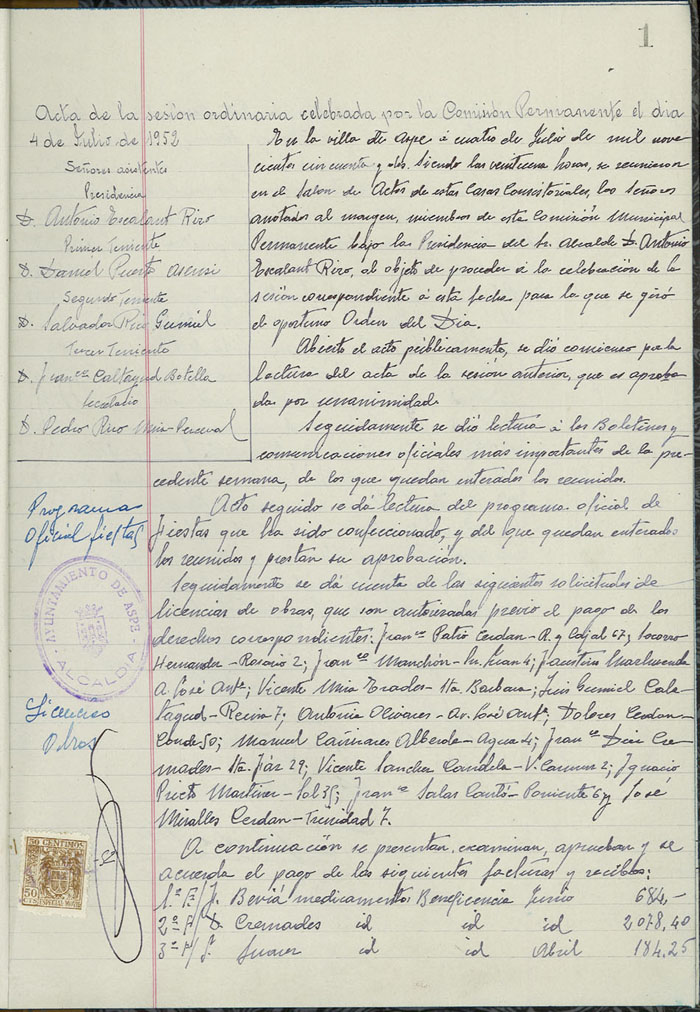 1
Acta de la sesión ordinaria celebrada por la Comisión Permanente el dia
4 de Julio de 1952
Señores asistentes
Presidencia
D. Antonio Escalant Rizo
Primer Teniente
D. Daniel Puerto Asensi
Segundo Teniente
D. Salvador Rico Gumiel
Tercer Teniente
D. Franco Caltayud Botella
Secretario
D. Pedro Rizo Mira-Perceval
En la villa de Aspe á cuatro de Julio de mil nove
cientos cincuenta y dos. Siendo las veintiuna horas, se reunieron
en el Salon de Actos de estas Casas Consistoriales, los Señores
anotados al margen, miembros de esta Comisión Municipal
Permanente bajo la Presidencia del Sr. Alcalde D. Antonio
Escalant Rizo, al objeto de proceder á la celebración de la
sesión correspondiente á esta fecha para la que se giró
el oportuno Orden del Dia.
Abierto el acto públicamente, se dió comienzo por la
lectura del acta de la sesión anterior, que es aproba
da por unanimidad.
Seguidamente se dió lectura á los Boletines y
comunicaciones oficiales más importantes de la pre-
cedente semana, de los que quedan enterados los reunidos.
Programa
Oficial fiestas
Acto seguido se dá lectura del programa oficial de
Fiestas que ha sido confeccionado, y del que quedan enterados
los reunidos y prestan su aprobación.
AYUNTAMIENTO DE ASPE
ALCALDIA
Licencias
Obras
Seguidamente se dá cuenta de las siguientes solicitudes de
licencias de obras, que son autorizadas previo el pago de los
derechos correspondientes: Franco Patió Cerdan - R. y Cajal 67; Socorro
Hernandez - Rosario 2; Franco Manchón - Sn. Juan 4; Faustino
A. José Anto; Vicente Mira Prades - Sta. Barbara; Luis Gumiel Cala-
tayud - Reina 7; Antonia Olivares - Av. José Anto; Dolores Cerdan -
Conde 50; Manuel Cañizares Alberola - Agua 4; Franco Diez Cre-
mades - Sta. Fáz 29; Vicente Sanchez Candela - V. Carmen 2; Ignacio
Prieto Martinez - Sol 35; Franco Salas Cantó - Poniente 6 y José
Miralles Cerdan - Trinidad 7.
A continuación se presentan, examinan, aprueban y se
acuerda el pago de las siguientes facturas y recibos:
1.ª F/ J. Beviá medicamentos Beneficencia Junio 684,-
2ª F/ D. Cremades id id id 2078,40
3ª F/ J. Suarez id id Abril 184,25
50 CENTIMOS
50
CTS ESPECIAL MOVIL